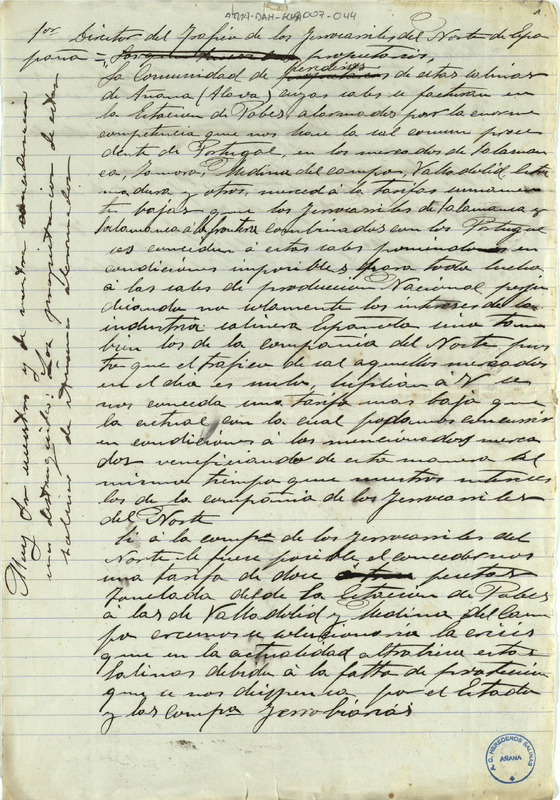 ANA-DAH-FHA007-044
1
Sr. Director del Trafico de los Ferrocarriles del Norte de Espa
paña =
propietario,
La Comunidad de herederos de estas salinas
de Añana (Alava) cuyas sales se facturan en
la Estacion de Pobes, alarmados por la enorme
competencia que nos hace la sal comun proce
dente de Portugal, en los mercados de Salaman
ca, Zamora, Medina del campo, Valladolid Estre
madura y otros, merced á la tarifas sumamen
te bajas, que los Ferrocarriles de Salamanca y
Salamanca á la frontera combinados con los de Portugal
conceden á estas sales poniendolas en
condiciones imposibles para toda lucha
á las sales de produccion Nacional perju
dicando no solamente los intereses de la
industria salinera Española sino tam
bien los de la compañia del Norte pues
to que el trafico de sal aquellos mercados
en el dia es nulo, suplican á V. se
nos conceda una tarifa mas baja que
la actual con la cual podamos concurrir
en condiciones á los mencionados merca
dos veneficiando de esta manera al
mismo tiempo que nuestros intereses
los de la compañia de los Ferrocarriles
del Norte
Si á la compª de los Ferrocarriles del
Norte le fuese posible el concedernos
una tarifa de doce pesetas
tonelada desde la Estacion de Pobes
á las de Valladolid y Medina del Cam
po creemos se solucionaria la crisis
que en la actualidad atrabiesa estas
salinas debida á la falta de proteccion
que se nos dispensa por el Estado
y las compª Ferrobiarias
Muy Sr nuestro y de nuestra consideracion
mas distinguida: Los propietarios de estas
salinas de Añana alarmados
A.C. HEREDEROS SALINAS
AÑANA